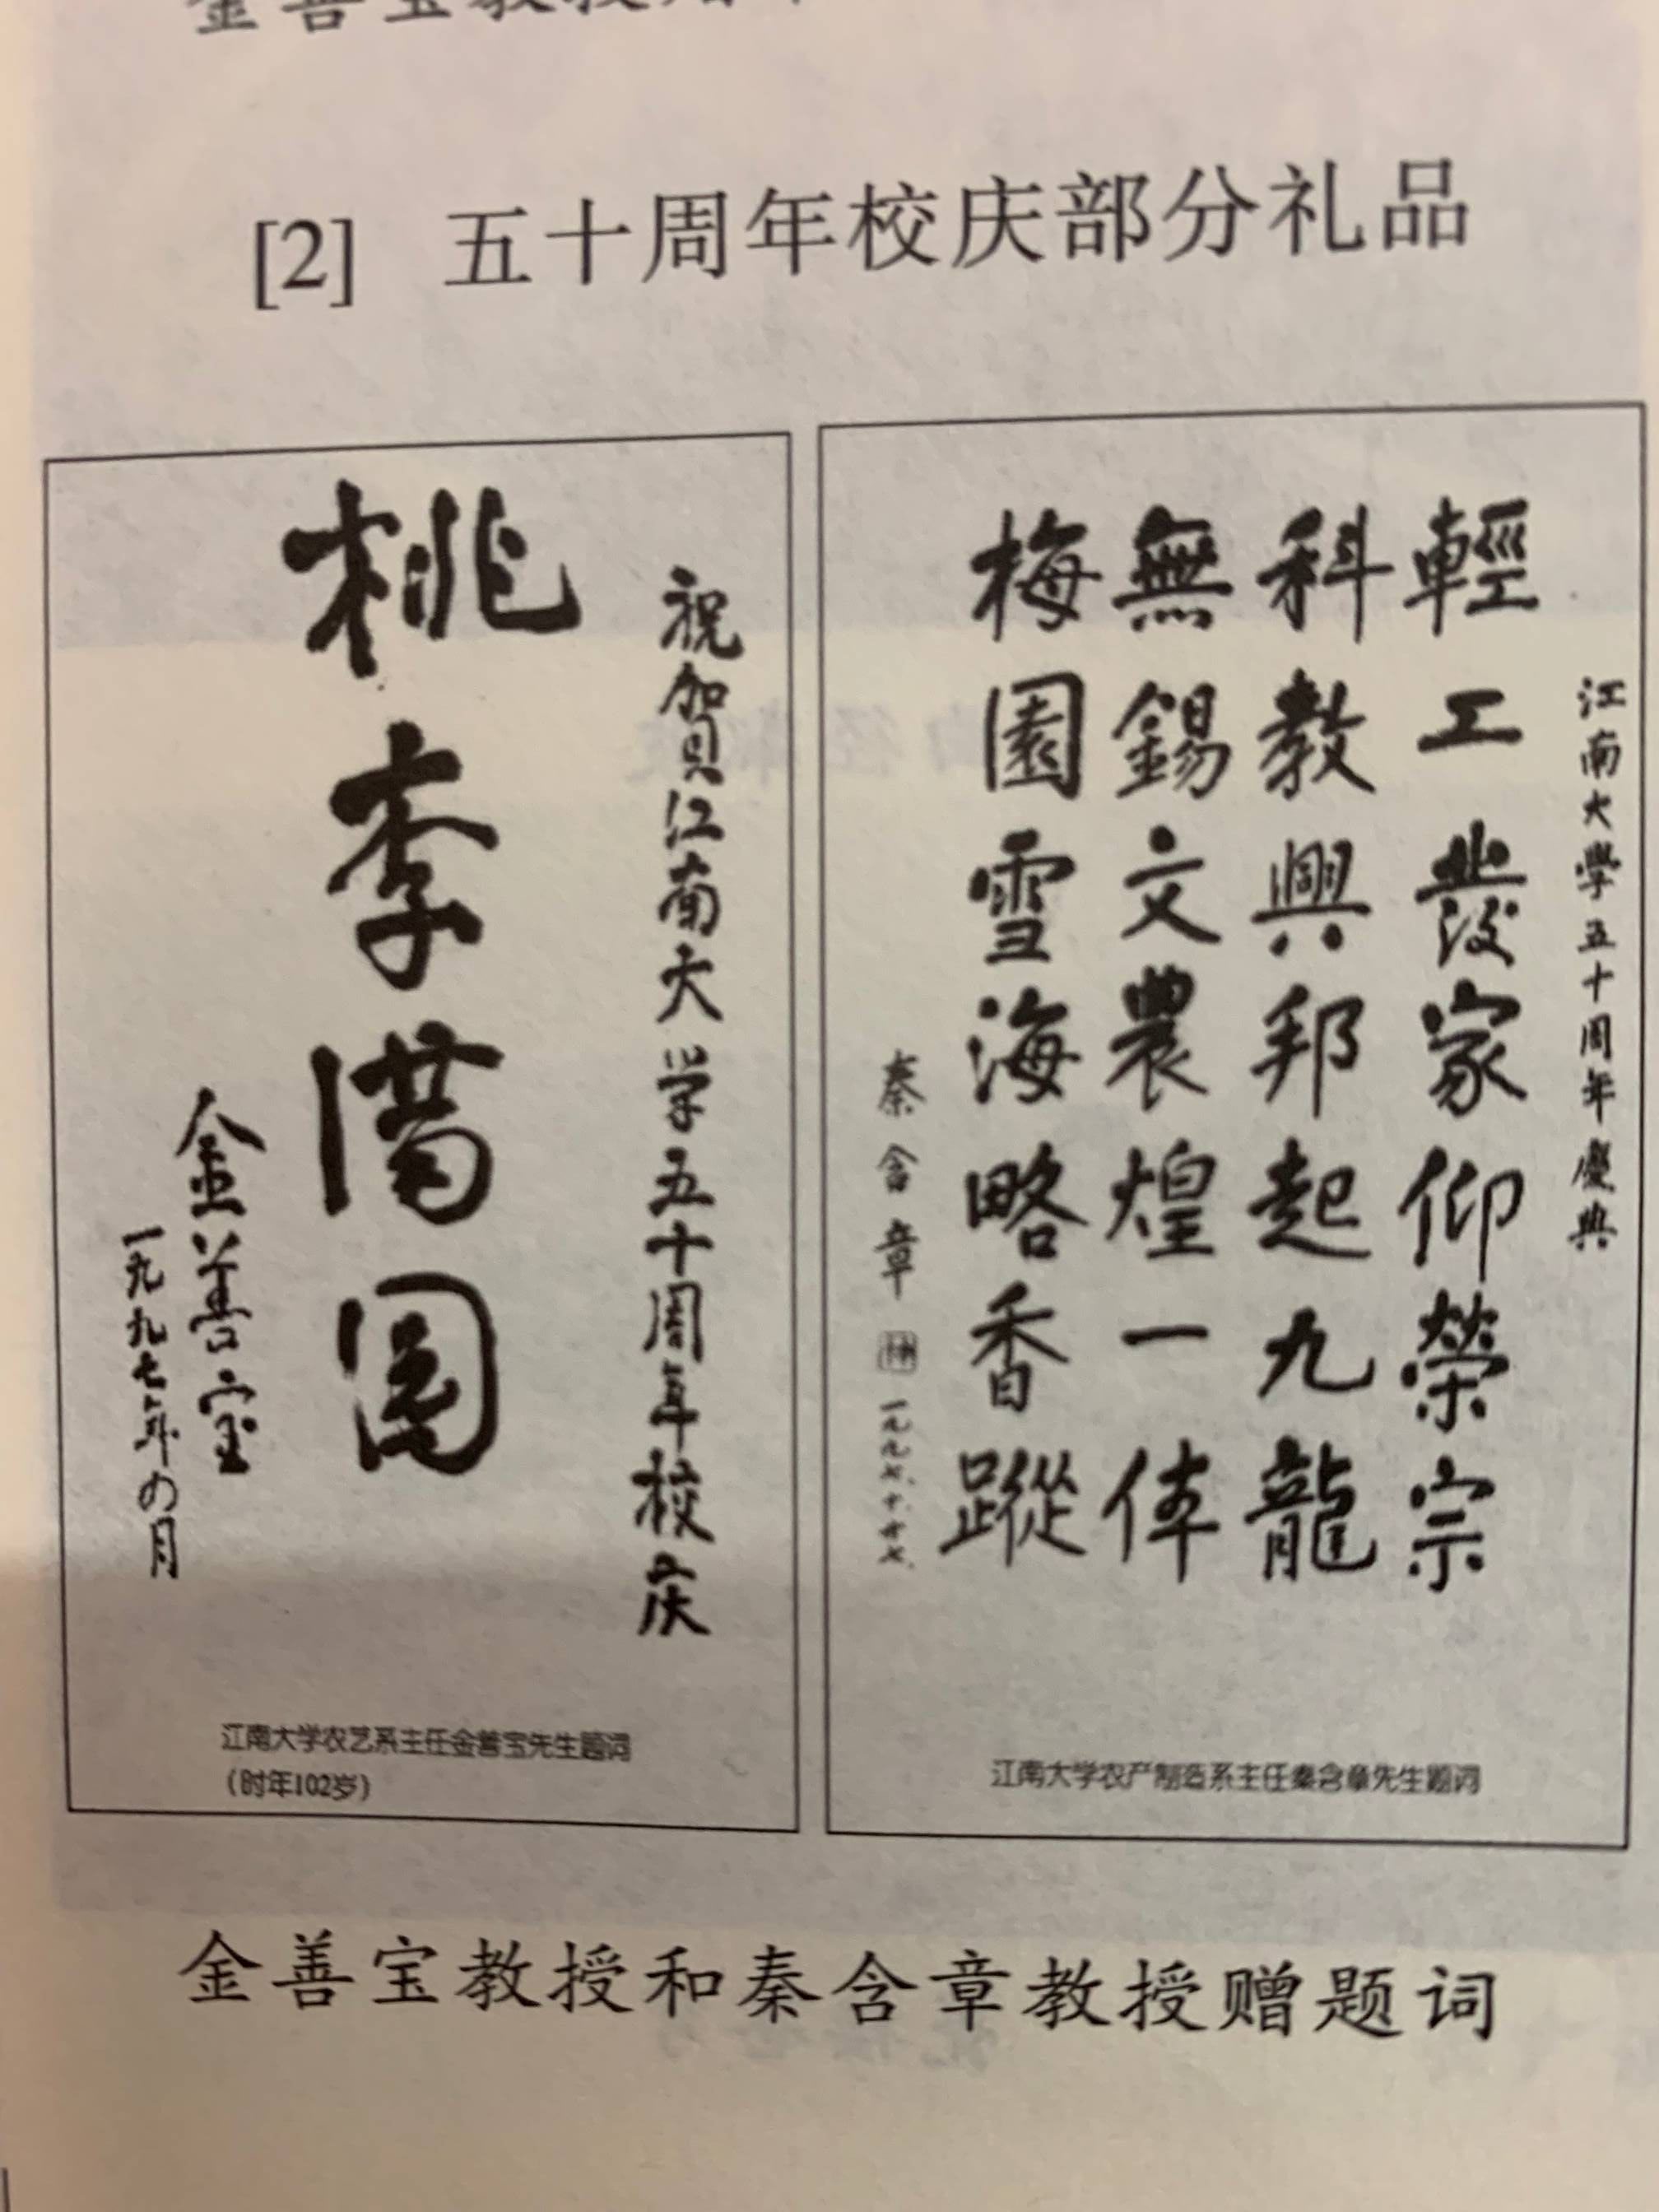 [2] 五十周年校庆部分礼品
祝贺江南大学五十周年校庆
桃李满园
金善宝
一九九七年の月
江南大学农艺系主任金善宝先生题词
（时年102岁）
江南大學五十周年慶典
輕工發家仰榮宗
科教興邦起九龍
無錫文農煌一体
梅園雪海略香蹤
秦含章
一九九七.十.廿七.
江南大学农产制造系主任秦含章先生题词
金善宝教授和秦含章教授赠题词